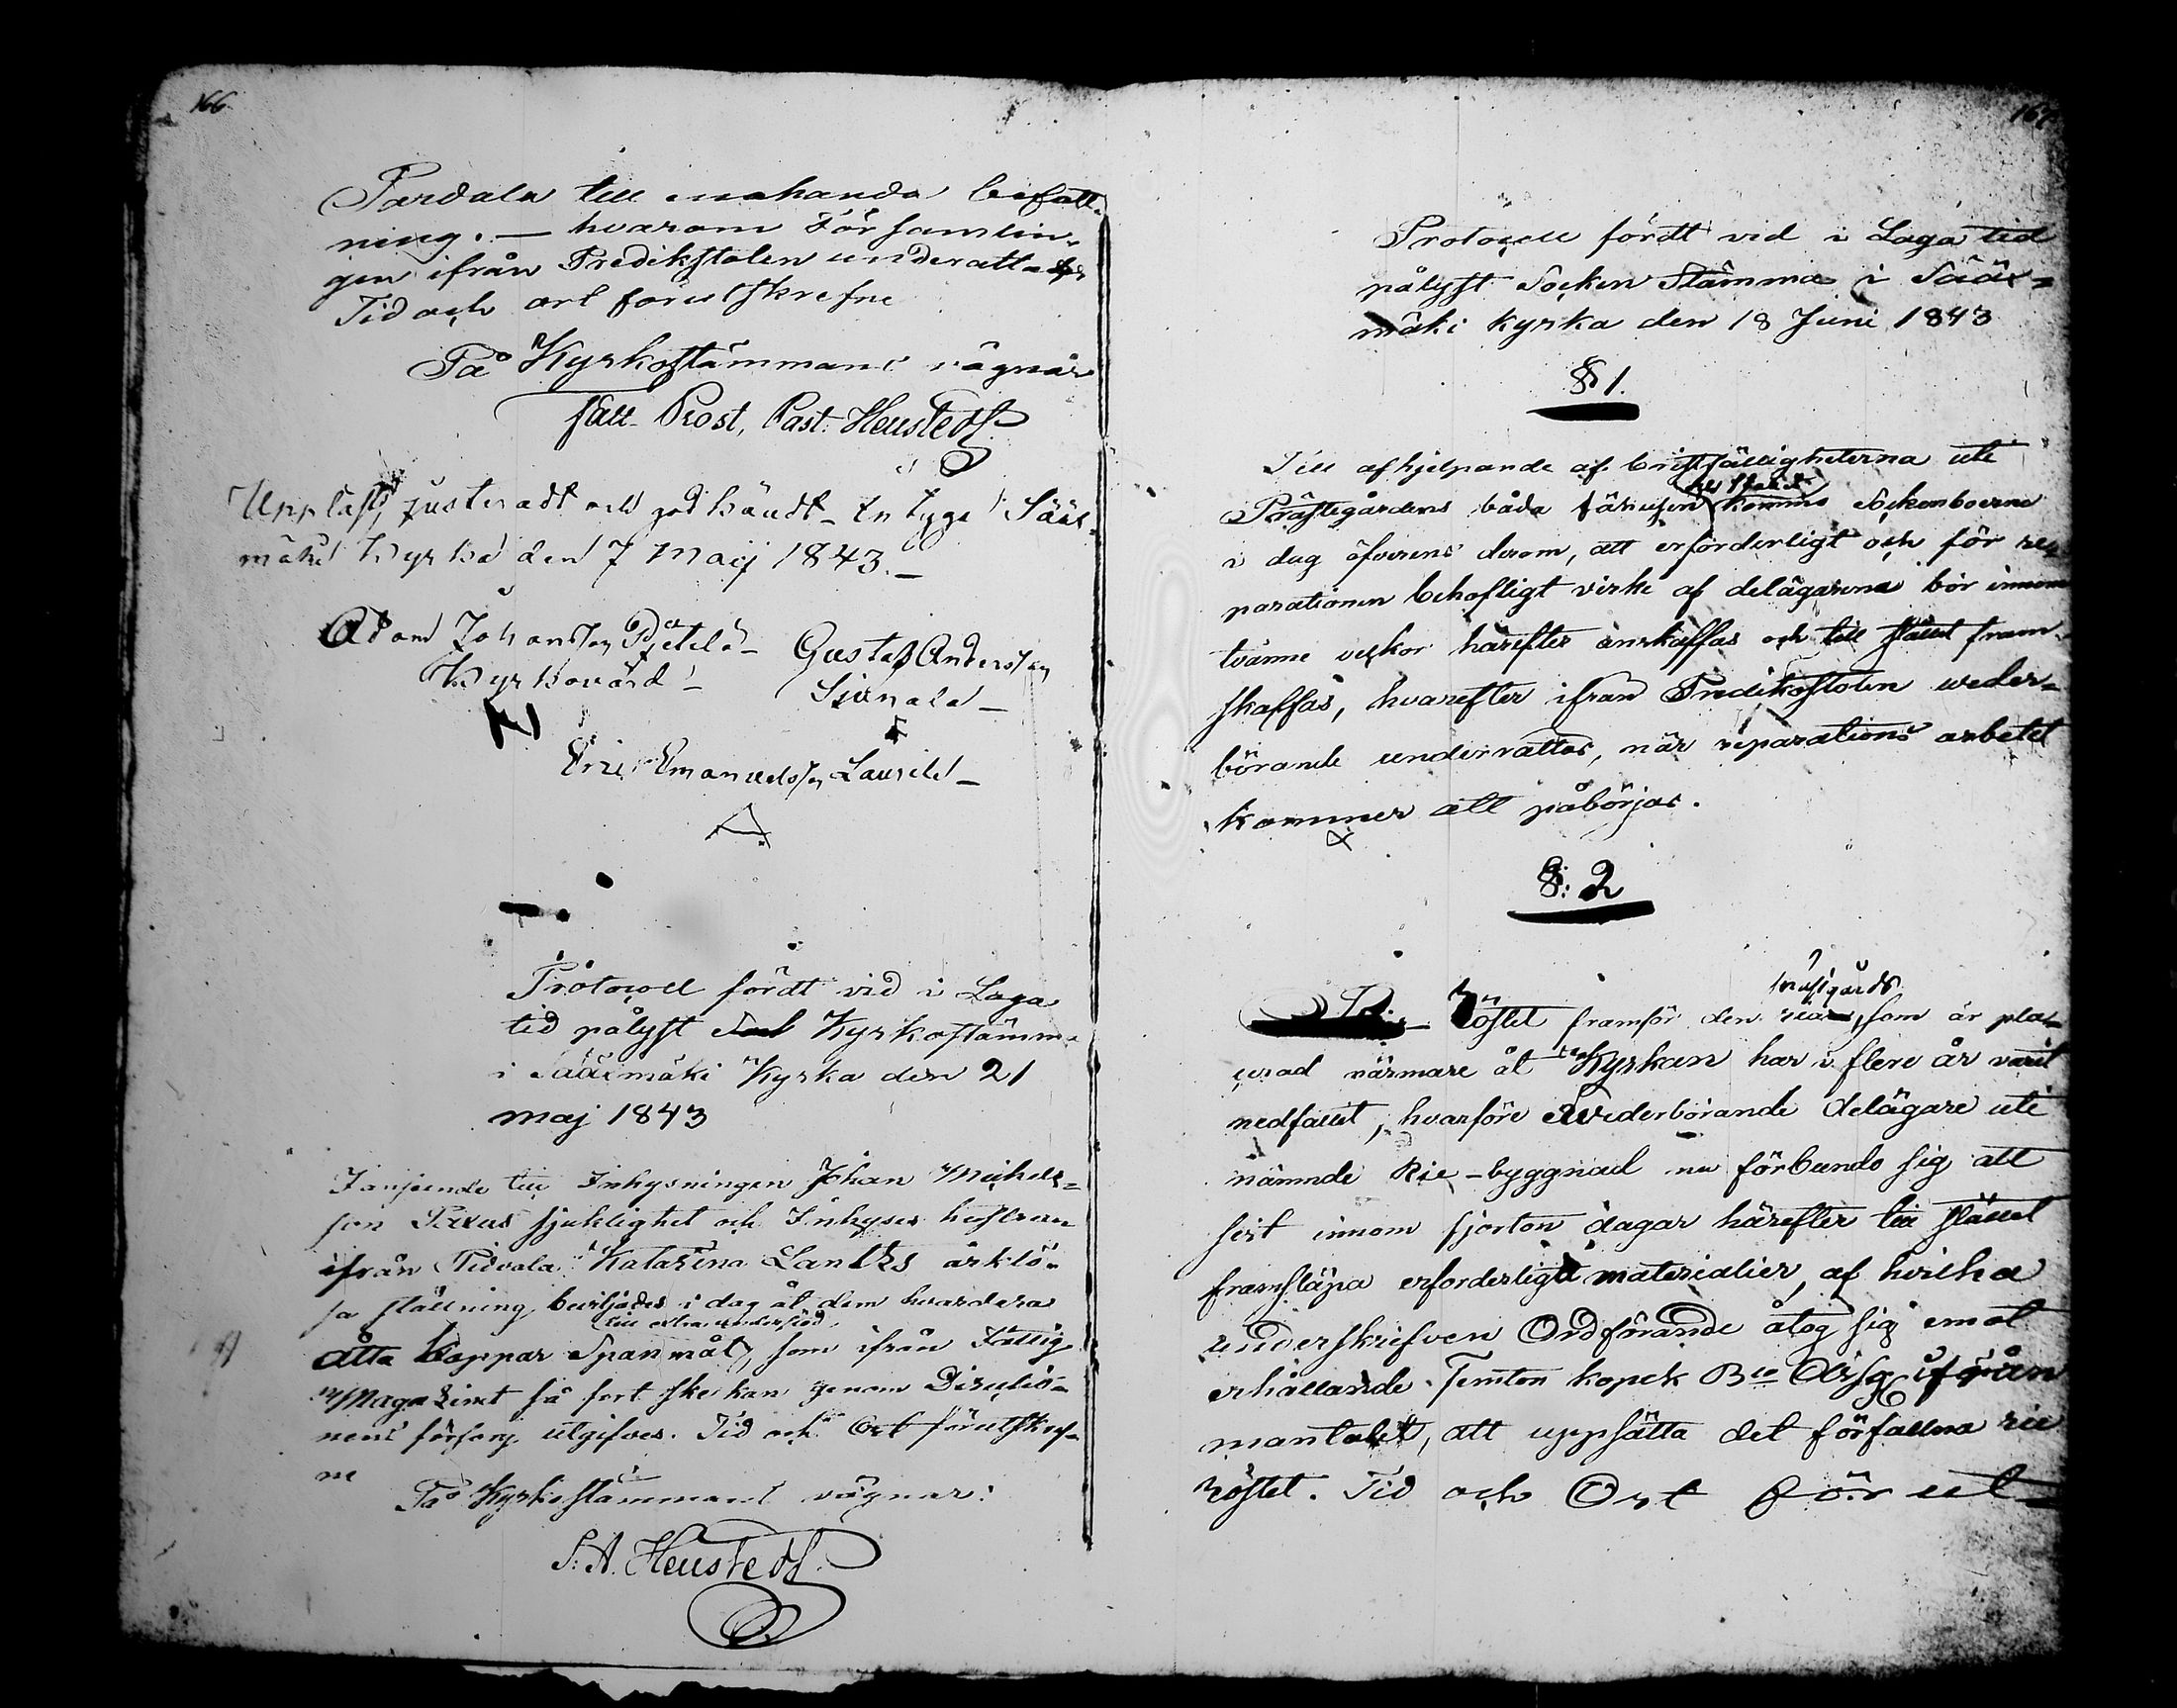 166
Pardala till enahanda befatt-
ning. — hvarom Församlin-
gen ifrån Predikstolen underättades
Tid och ort förutskrefne
På Kyrkostämmans vägnar
Fält-Prost, Past. Heustedt
Uppläst, justeradt och godkändt, intyga Sääx-
mäki Kyrka den 7 Maij 1843.—
Adam Johansson Pjetilä
Gustaf Andersson
Kyrkovärd
Eric Emanuelsson Laurila
Protocoll fördt vid i Laga
tid pålyst Kyrkostämma
i Sääxmäki Kyrka den 21
maj 1843
I anseende till Inhysningen Johan Michels-
son sjuklighet och Inhyses hustrun
ifrån Tidvala Katarina
sa ställning beviljades i dag åt dem hvardera
till extra understöd
åtta kappar Spanmål, som ifrån Fattig
Magazinet så fort ske kan genom Direktio-
nens försorg utgifves. Tid och Ort förutskref-
ne
På Kyrkostämmans vägnar:
S. A. Heustedt
167
Protocoll fördt vid i Laga tid
pålyst Socken Stämma i Sääx-
mäki Kyrka den 18 Juni 1843
§ 1.
Till afhjelpande af bristfälligheterna uti
Prästegårdens båda fähusen kommo Sockenboerne
i dag öfverens derom, att erforderligt och för re-
parationen behöfligt virke af delägarena bör innom
tvänne veckor härefter anskaffas och till stället fram-
skaffas, hvarefter ifrån Predikostolen weder-
börande underrättas, när reparations arbetet
kommer att påbörjas.
§: 2
Röstet framför den rian, som är pla-
prästgårds
cerad närmare åt Kyrkan har i flere år varit
nedfallet, hvarföre Wederbörande delägare uti
nämnde Rie-byggnad nu förbundo sig att
sist innom fjorton dagar härefter till stället
framsläpa erforderligt materialier, af hvilka
underskrifven Ordförande åtog sig emot
erhållande Femton kopek Bco Assg ifrån
mantalet, att uppsätta det förfallna rie
röstet. Tid och Ort förut-